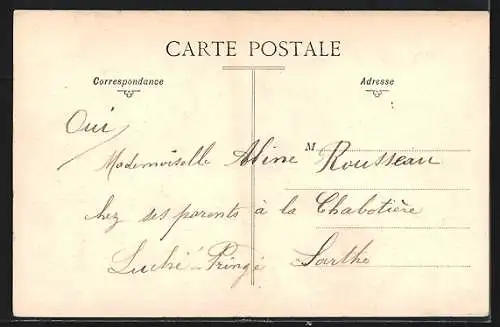 CARTE POSTALE
Correspondance
Adresse
Oui
Mademoiselle Aline M Rousseau
chez ses parents à la Chabotière
Luché-Pringé Sarthe